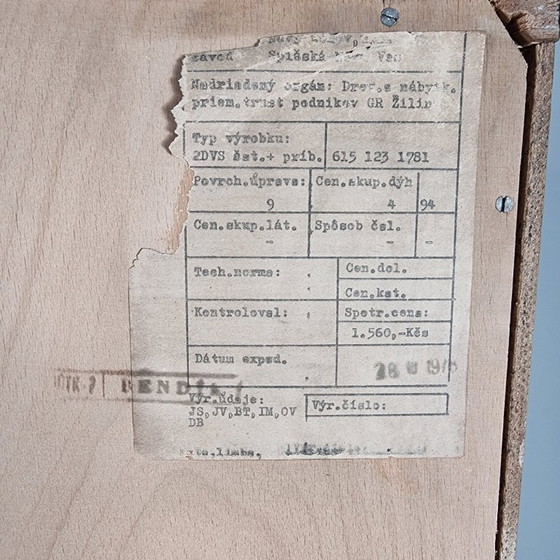 závod Spišská Nová Ves
Nadriadený orgán: Drev.a nábytk.
priem.trust podnikov GR Žilin
Typ výrobku:
2DVS čst.+ príb. 615 123 1781
Povrch.úprava: Cen.skup.dýh
9 4 94
Cen.skup.lát. Spôsob čsl.
- - -
Tech.norma: Cen.dol.
Cen.kat.
Kontroloval: Spotr.cena:
1.560,-Kčs
Dátum exped.
BENDÍK
Výr.údaje: Výr.číslo:
JS,JV,BT,IM,OV
DB